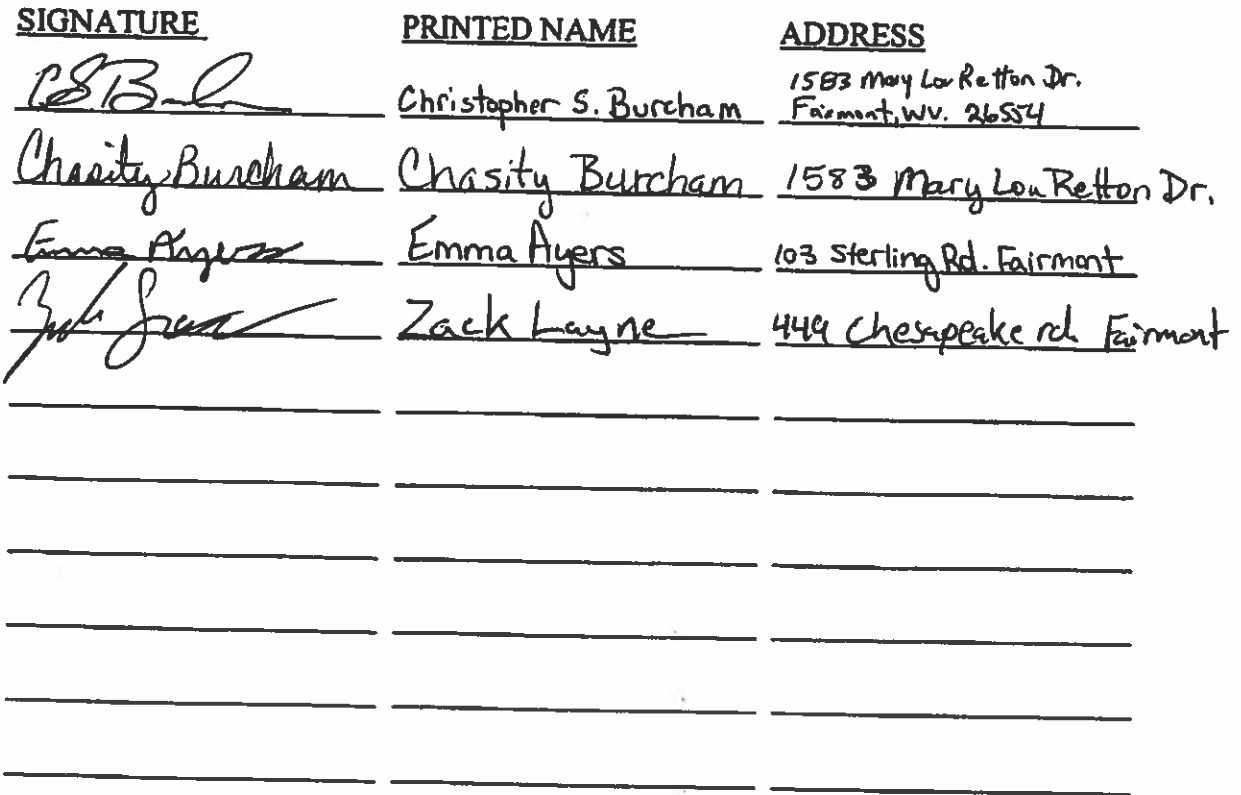 SIGNATURE PRINTED NAME ADDRESS
Christopher S. Burcham 1583 Mary Lou Retton Dr.
Fairmont, WV. 26554
Chasity Burcham Chasity Burcham 1583 Mary Lou Retton Dr.
Emma Ayers Emma Ayers 103 Sterling Rd. Fairmont
Zack Layne 449 Chesapeake rd Fairmont